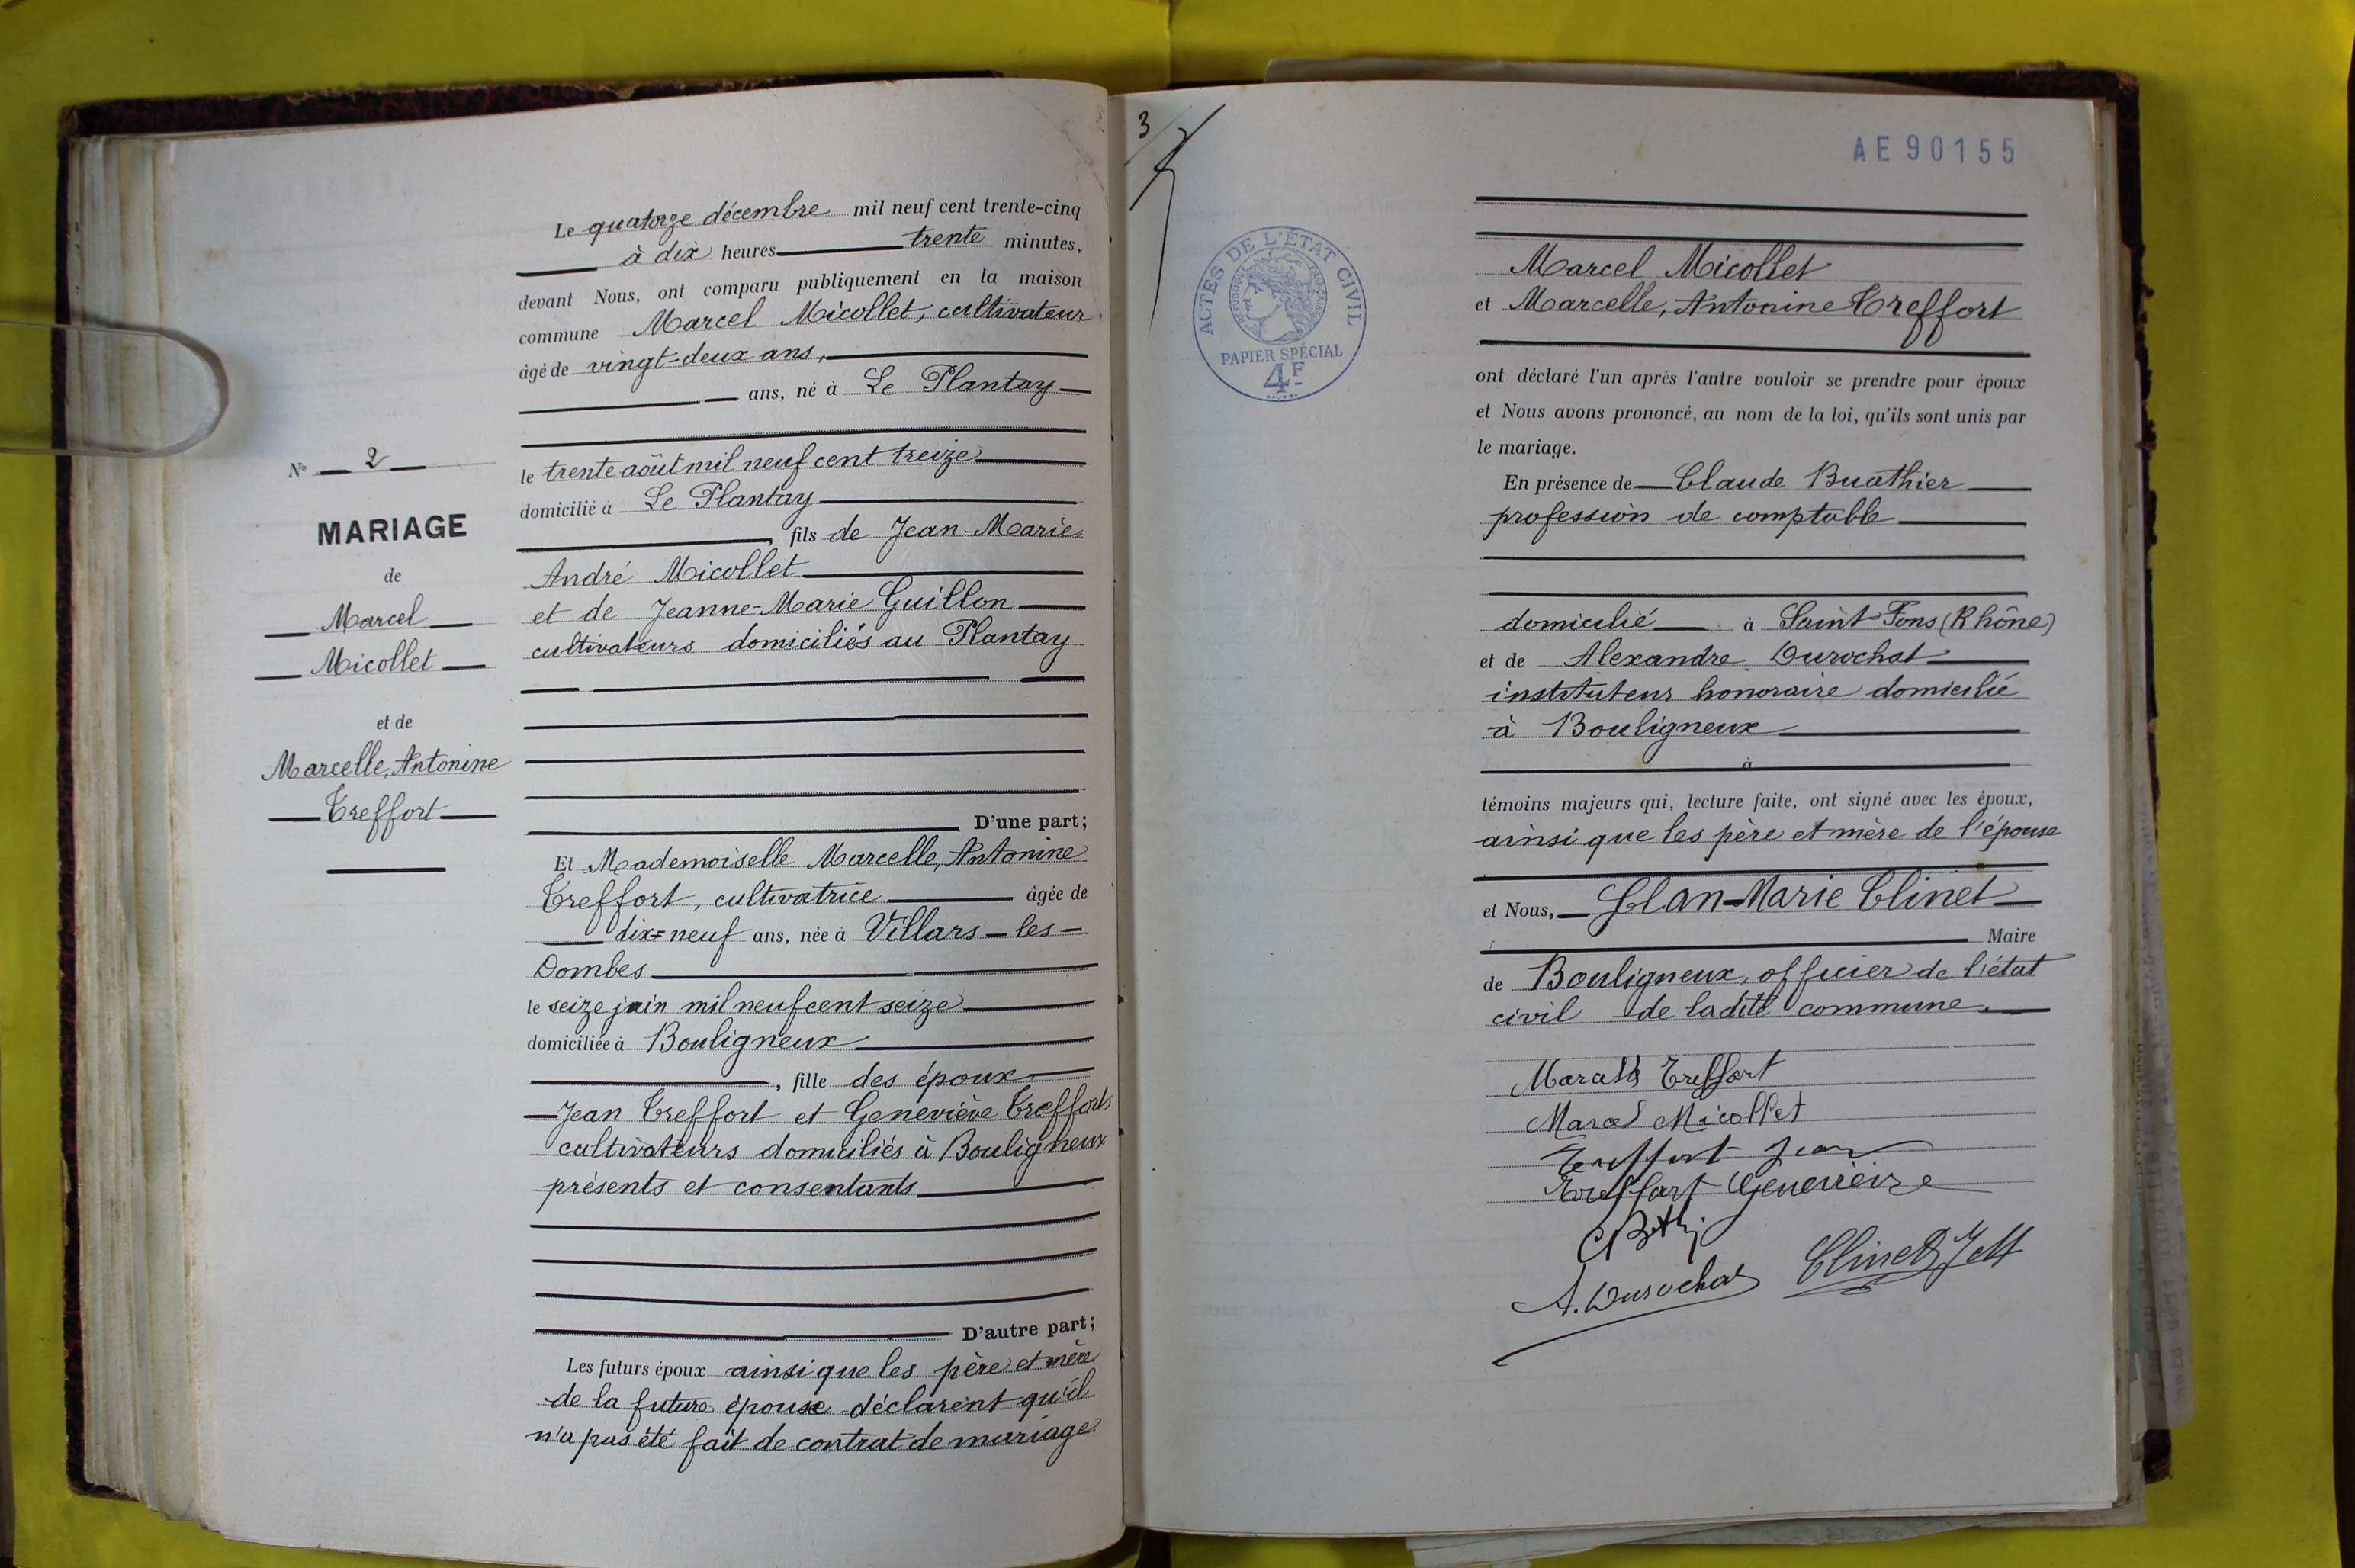 N° 2
MARIAGE
de
Marcel
Micollet
et de
Marcelle, Antonine
Treffort
Le quatorze décembre mil neuf cent trente-cinq
à dix heures trente minutes,
devant Nous, ont comparu publiquement en la maison
commune Marcel Micollet, cultivateur
âgé de vingt-deux ans,
ans, né à Le Plantay
le trente août mil neuf cent treize
domicilié à Le Plantay
, fils de Jean-Marie
André Micollet
et de Jeanne-Marie Guillon
cultivateurs domiciliés au Plantay
D'une part;
Et Mademoiselle Marcelle, Antonine
Treffort, cultivatrice âgée de
dix-neuf ans, née à Villars-les-
Dombes
le seize juin mil neuf cent seize
domiciliée à Bouligneux
, fille des époux
Jean Treffort et Geneviève Treffort
cultivateurs domiciliés à Bouligneux
présents et consentants
D'autre part;
Les futurs époux ainsi que les père et mère
de la future épouse déclarent qu'il
n'a pas été fait de contrat de mariage
3
AE 90155
ACTES DE L'ÉTAT CIVIL
RÉPUBLIQUE FRANÇAISE
PAPIER SPÉCIAL
4F
Marcel Micollet
et Marcelle, Antonine Treffort
ont déclaré l'un après l'autre vouloir se prendre pour époux
et Nous avons prononcé, au nom de la loi, qu'ils sont unis par
le mariage.
En présence de Claude Buathier
profession de comptable
domicilié à Saint Fons (Rhône)
et de Alexandre Durochat
instituteur honoraire domicilié
à Bouligneux
à
témoins majeurs qui, lecture faite, ont signé avec les époux,
ainsi que les père et mère de l'épouse
et Nous, Jean-Marie Clinet
Maire
de Bouligneux, officier de l'état
civil de ladite commune.
Marcelle Treffort
Marcel Micollet
Treffort Jean
Treffort Geneviève
A. Durochat Clinet JM